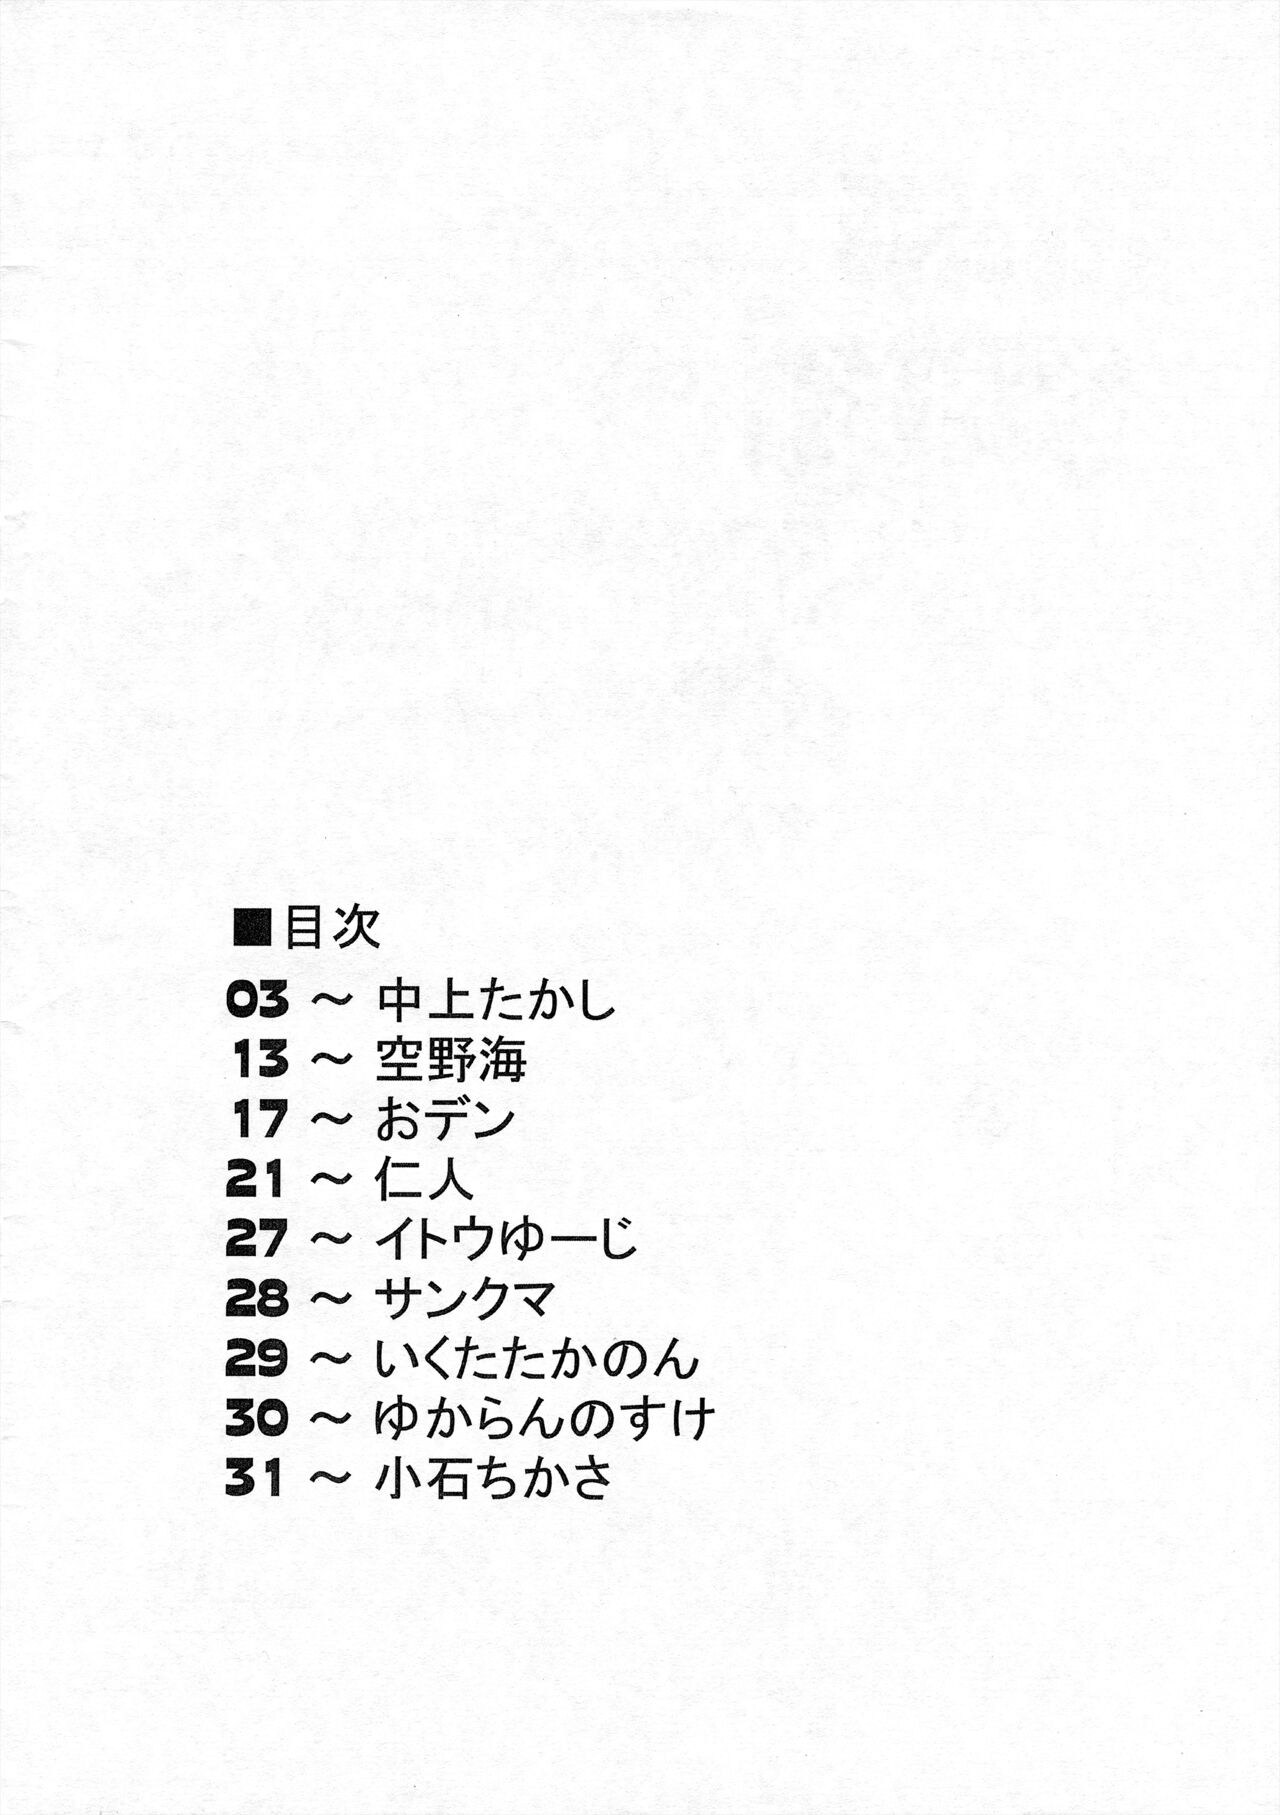 ■目次
03 ～ 中上たかし
13 ～ 空野海
17 ～ おデン
21 ～ 仁人
27 ～ イトウゆーじ
28 ～ サンクマ
29 ～ いくたたかのん
30 ～ ゆからんのすけ
31 ～ 小石ちかさ